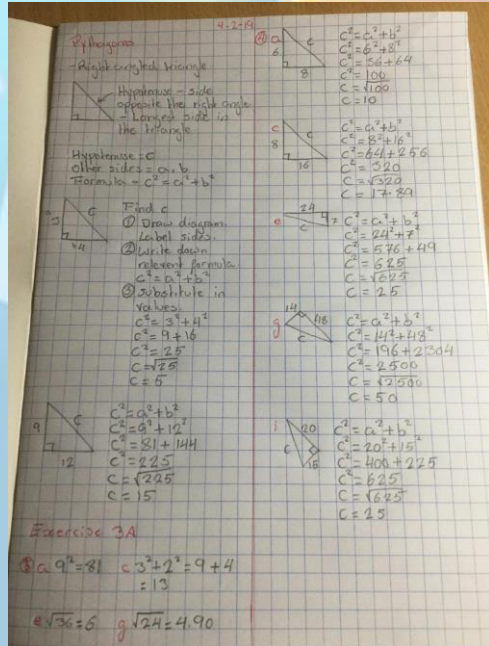 4-2-19
Pythagoras
- Right angled triangle
Hypotenuse - side
opposite the right angle
- Longest side in
the triangle
Hypotenuse = c
Other sides = a, b
Formula - c² = a² + b²
3
c
4
Find c
① Draw diagram.
Label sides.
② Write down
relevent formula
c² = a² + b²
③ Substitute in
values.
c² = 3² + 4²
c² = 9 + 16
c² = 25
c = √25
c = 5
9
c
12
c² = a² + b²
c² = 9² + 12²
c² = 81 + 144
c² = 225
c = √225
c = 15
Exercise 3A
③ a 9² = 81
c 3² + 2² = 9 + 4
= 13
e √36 = 6
g √24 = 4.90
④ a
6
c
8
c² = a² + b²
c² = 6² + 8²
c² = 36 + 64
c² = 100
c = √100
c = 10
c
8
c
16
c² = a² + b²
c² = 8² + 16²
c² = 64 + 256
c² = 320
c = √320
c = 17.89
e
24
7
c
c² = a² + b²
c² = 24² + 7²
c² = 576 + 49
c² = 625
c = √625
c = 25
g
14
48
c
c² = a² + b²
c² = 14² + 48²
c² = 196 + 2304
c² = 2500
c = √2500
c = 50
i
20
c
15
c² = a² + b²
c² = 20² + 15²
c² = 400 + 225
c² = 625
c = √625
c = 25